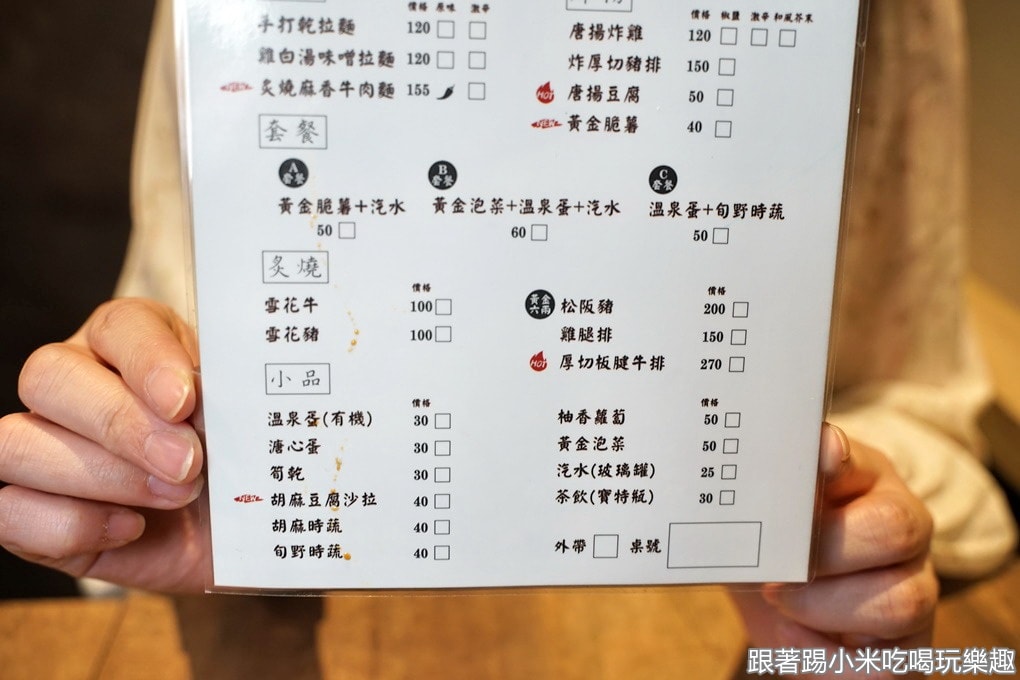 價格 原味 激辛
手打乾拉麵 120
雞白湯味噌拉麵 120
NEW 炙燒麻香牛肉麵 155
價格 椒鹽 激辛 和風芥末
唐揚炸雞 120
炸厚切豬排 150
HOT 唐揚豆腐 50
NEW 黃金脆薯 40
套餐
A套餐
黃金脆薯+汽水
50
B套餐
黃金泡菜+溫泉蛋+汽水
60
C套餐
溫泉蛋+旬野時蔬
50
炙燒
價格
雪花牛 100
雪花豬 100
價格
黃金六兩 松阪豬 200
雞腿排 150
HOT 厚切板腱牛排 270
小品
價格
溫泉蛋(有機) 30
溏心蛋 30
筍乾 30
NEW 胡麻豆腐沙拉 40
胡麻時蔬 40
旬野時蔬 40
價格
柚香蘿蔔 50
黃金泡菜 50
汽水(玻璃罐) 25
茶飲(寶特瓶) 30
外帶 桌號
跟著踢小米吃喝玩樂趣